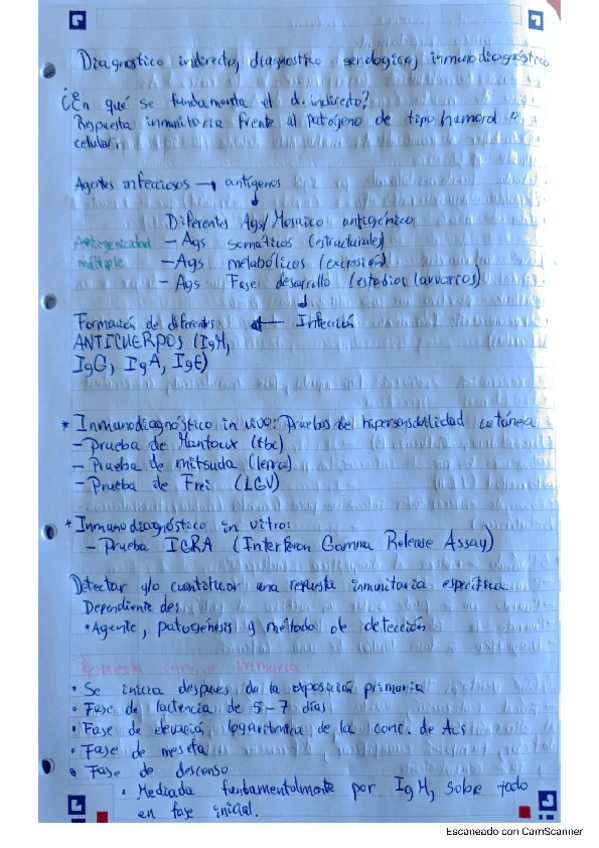 Diagnostico indirecto, diagnostico serologico, inmunodiagnóstico
¿En qué se fundamenta el d. indirecto?
Respuesta inmunitaria frente al patogeno de tipo humoral o
celular.
Agentes infecciosos → antigenos
Diferentes Ags/Mosaico antigénico
Antigenicidad
múltiple
- Ags somáticos (estructurales)
- Ags metabólicos (excreción)
- Ags Fase desarrollo (estadios larvarios)
Formación de diferentes ← Infección
ANTICUERPOS (IgM,
IgG, IgA, IgE)
* Inmunodiagnóstico in vivo: Pruebas de hipersensibilidad cutánea
- Prueba de Mantoux (tbc)
- Prueba de mitsuda (lepra)
- Prueba de Frei (LGV)
* Inmunodiagnóstico in vitro:
- Prueba IGRA (Interferon Gamma Release Assay)
Detectar y/o cuantificar una respuesta inmunitaria específica
Dependiente de:
• Agente, patogénesis y método de detección
Respuesta inmune primaria
• Se inicia despues de la exposición primaria
• Fase de lactencia de 5-7 días
• Fase de elevació logaritmica de la conc. de Acs
• Fase de meseta
• Fase de descenso
• Mediada fundamentalmente por IgM, sobre todo
en fase inicial.
Escaneado con CamScanner